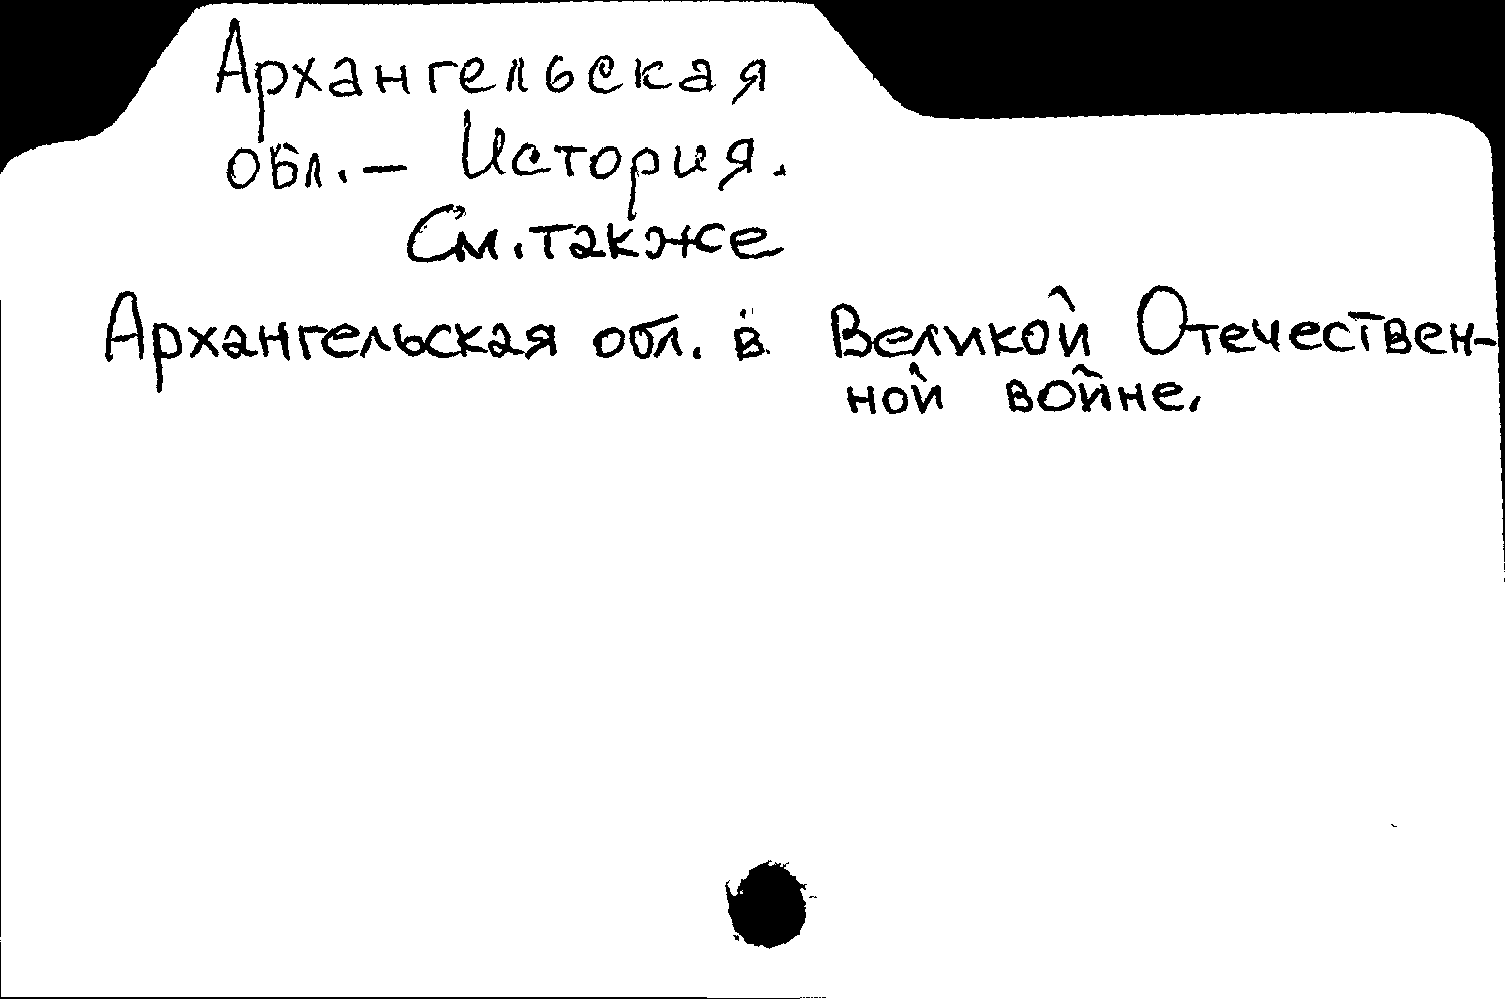 Архангельская
обл. – История.
См. также
Архангельская обл. в Великой Отечествен-
ной войне.